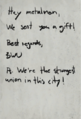 Hey metalman,
We sent you a gift!
Best regards,
BWU
Ps. We're the strongest
union in this city!